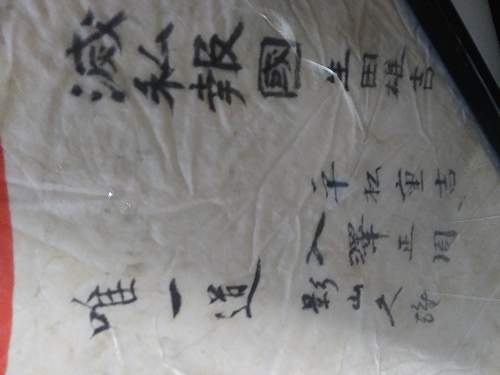 滅私報國
生田雄吉
平松重吉
入澤正周
唯一道
影山久